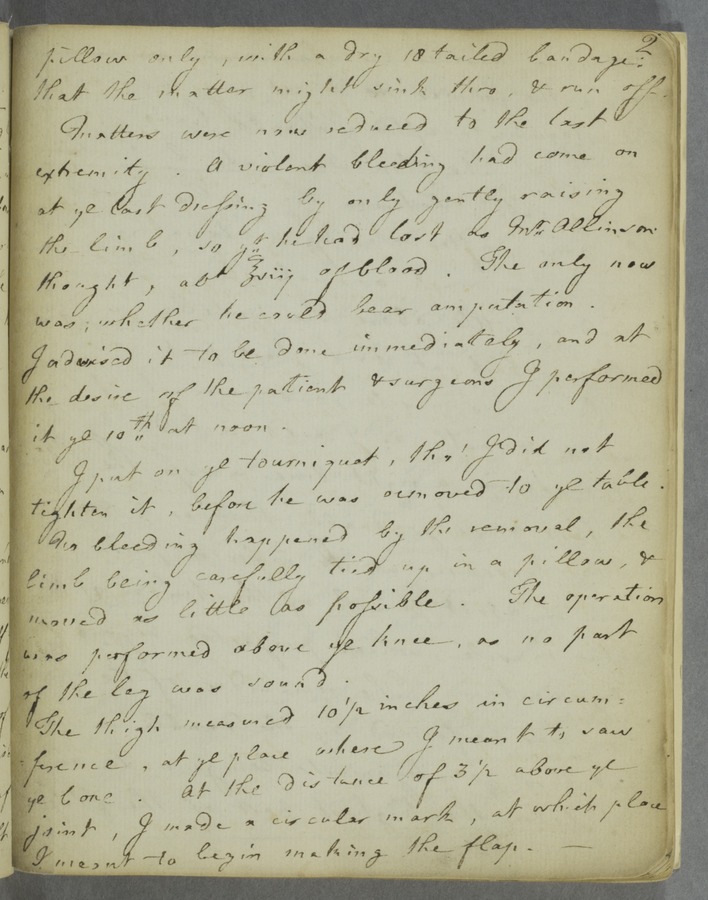 2
pillow only, with a dry 18 tailed bandage:
that the matter might sink thro, & run off.
Matters were now reduced to the last
extremity. A violent bleeding had come on
at ye last dressing by only gently raising
the limb, so yt he had lost as Mr. Allinson
thought, abt ℥viij of blood. The only now
was, whether he could bear amputation.
I advised it to be done immediately, and at
the desire of the patient & surgeons I performed
it ye 10th at noon.
I put on ye tourniquet, tho' I did not
tighten it, before he was removed to ye table.
No bleeding happened by this removal, the
limb being carefully tied up in a pillow, &
moved as little as possible. The operation
was performed above ye knee, as no part
of the leg was sound.
The thigh measured 10 1/2 inches in circum=
ference, at ye place where I meant to saw
ye bone. At the distance of 3 1/2 above ye
joint, I made a circular mark, at which place
I meant to begin making the flap. —